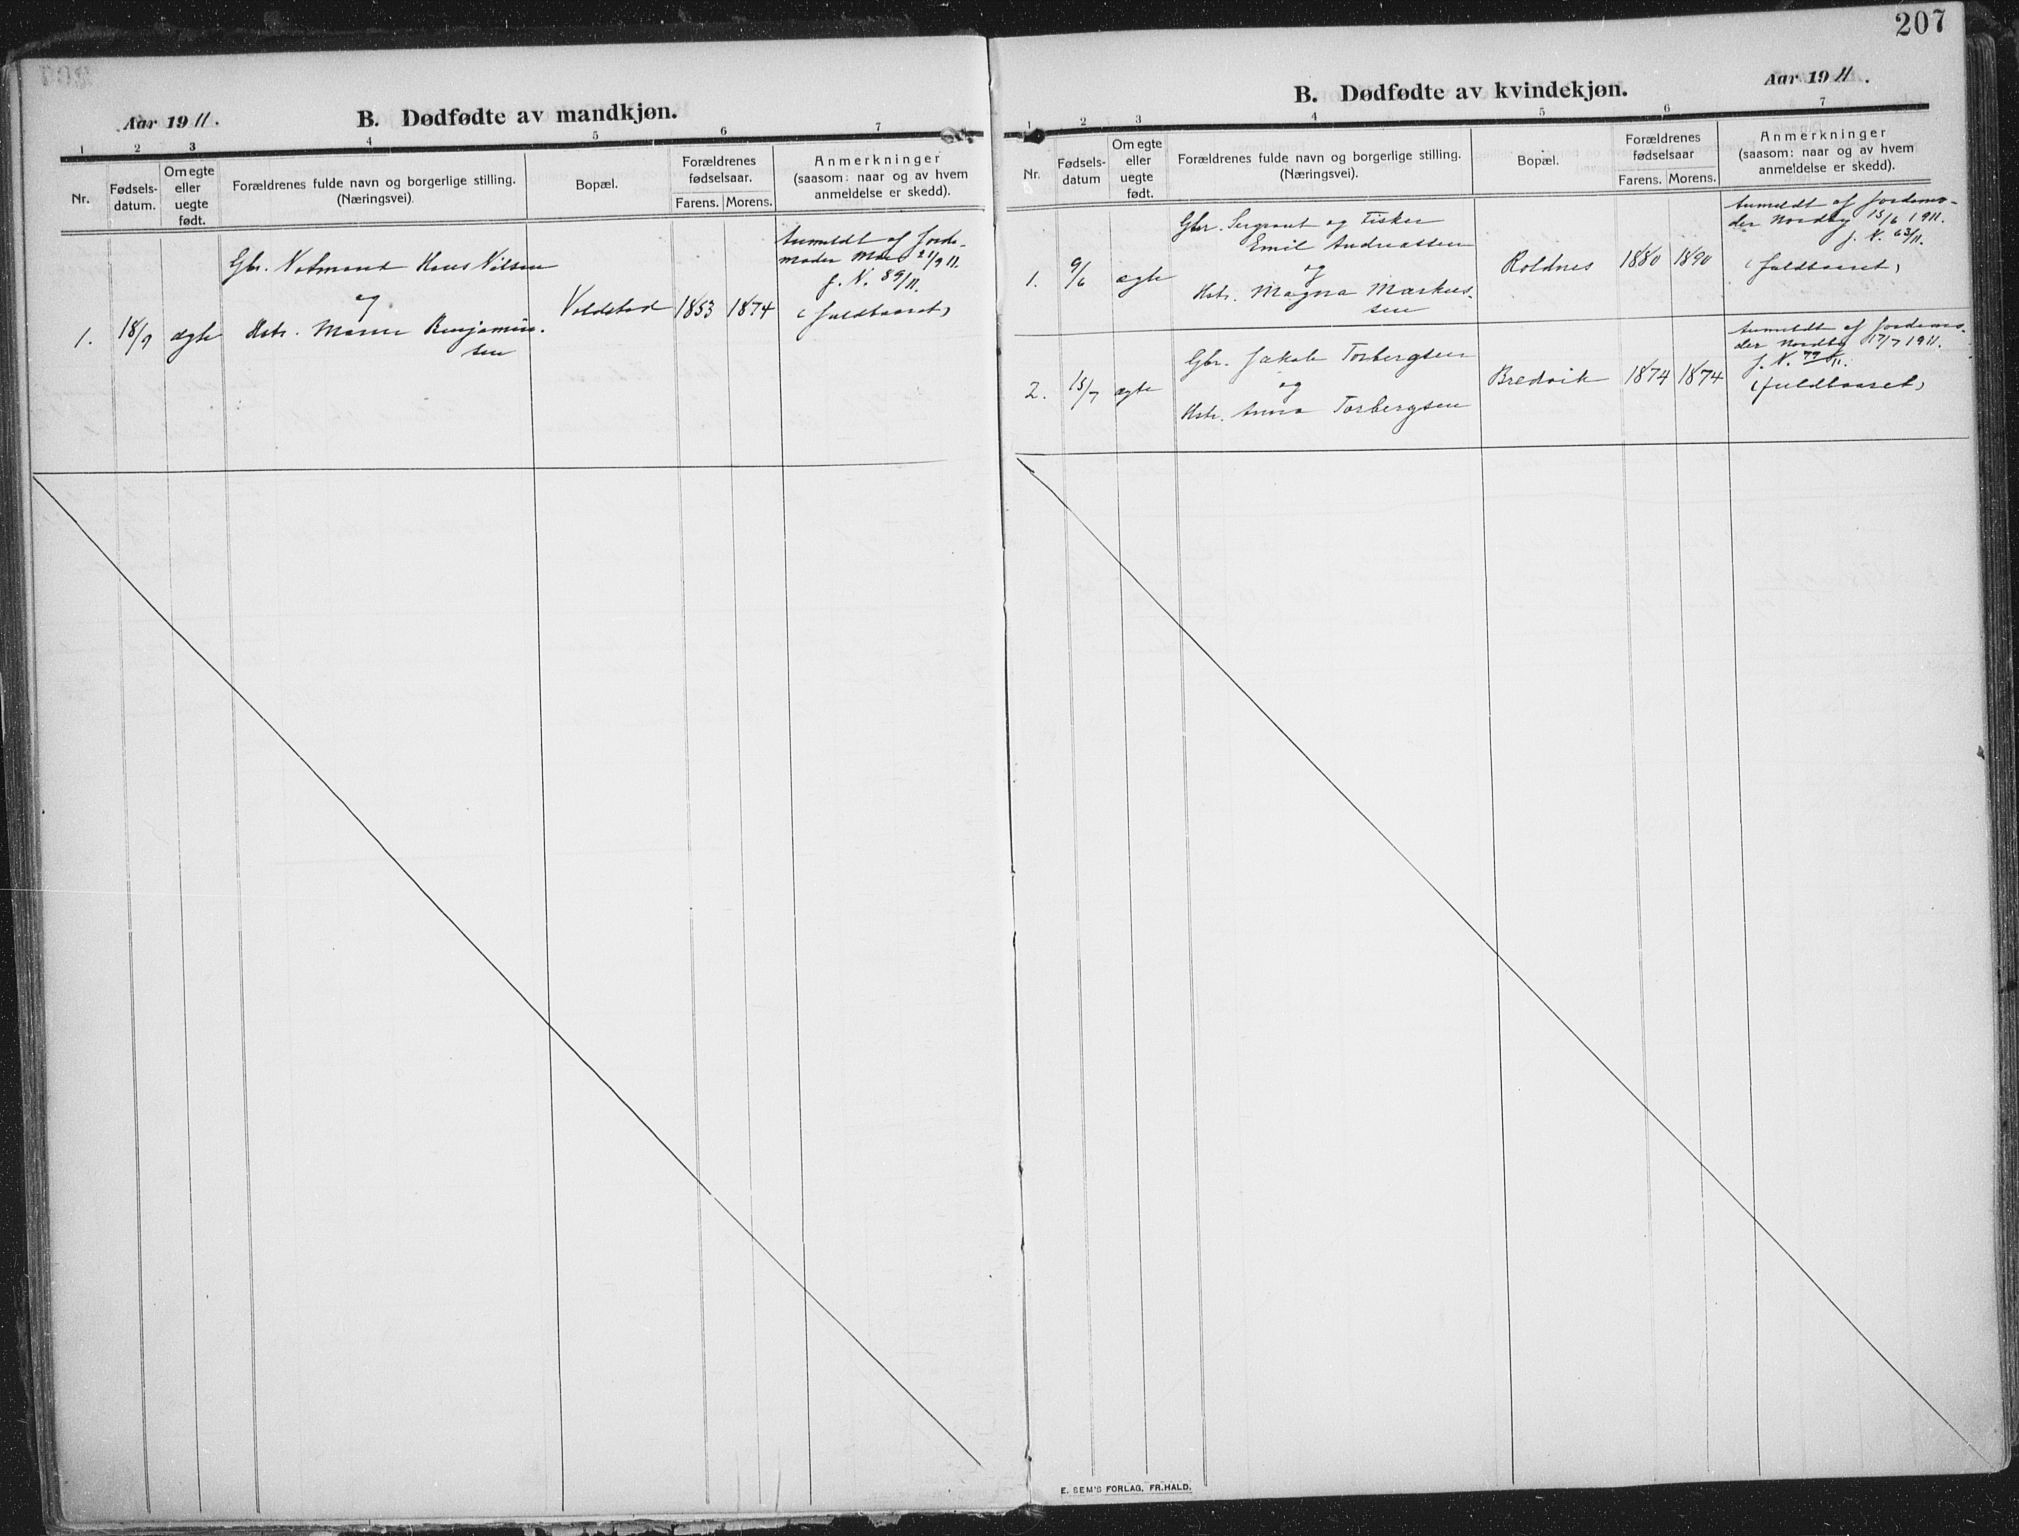 207
Aar 1911.
B. Dødfødte av mandkjøn.
1 2 3 4 5 6 7
Nr.
Fødsels-
datum.
Om egte
eller
uegte
født.
Forældrenes fulde navn og borgerlige stilling.
(Næringsvei).
Bopæl.
Forældrenes
fødselsaar.
Farens. Morens.
Anmerkninger
(saasom: naar og av hvem
anmeldelse er skedd).
1.
18/9
ægte
Gbr. Notmand Hans Nilsen
og
Hstr. Maren Benjamin-
sen
Voldstad
1853
1874
Anmeldt af Jorde-
moder 21/9 11.
J. N. 89/11.
(fuldbaaret)
Aar 1911.
B. Dødfødte av kvindekjøn.
1 2 3 4 5 6 7
Nr.
Fødsels-
datum
Om egte
eller
uegte
født.
Forældrenes fulde navn og borgerlige stilling.
(Næringsvei).
Bopæl.
Forældrenes
fødselsaar
Farens. Morens.
Anmerkninger
(saasom: naar og av hvem
anmeldelse er skedd).
1.
9/6
ægte
Gbr. Sergeant og Fisker
Emil Andreassen
og
Hstr. Magna Markus-
sen
Roldnes
1880
1890
Anmeldt af Jordemo-
der Nordby 15/6 1911.
J. N. 63/11.
(fuldbaaret)
2.
15/7
ægte
Gbr. Jakob Torbergsen
og
Hstr. Anna Torbergsen
Bredvik
1874
1874
Anmeldt af Jordemo-
der Nordby 17/7 1911.
J. N. 79/11.
(fuldbaaret)
E. SEM'S FORLAG, FR.HALD.